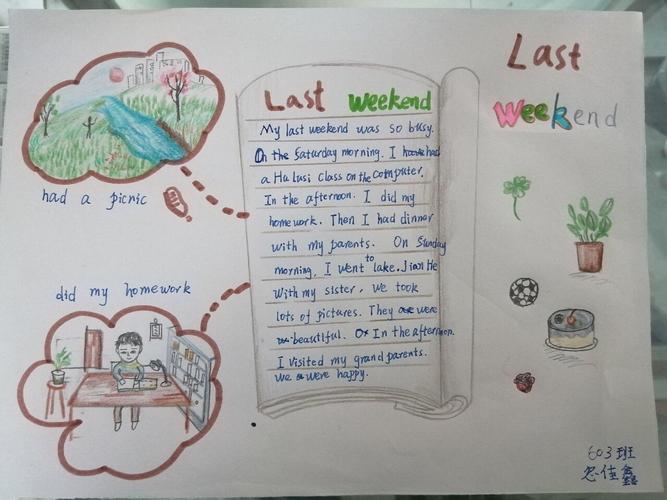 Last
Weekend
Last Weekend
My last weekend was so busy.
On the Saturday morning. I had
a Hu lusi class on the computer.
In the afternoon. I did my
homework. Then I had dinner
with my parents. On Sunday
morning, I went to lake. Jian He
with my sister, we took
lots of pictures. They were
beautiful. In the afternoon.
I visited my grandparents.
we were happy.
had a picnic
did my homework
603班
佳鑫